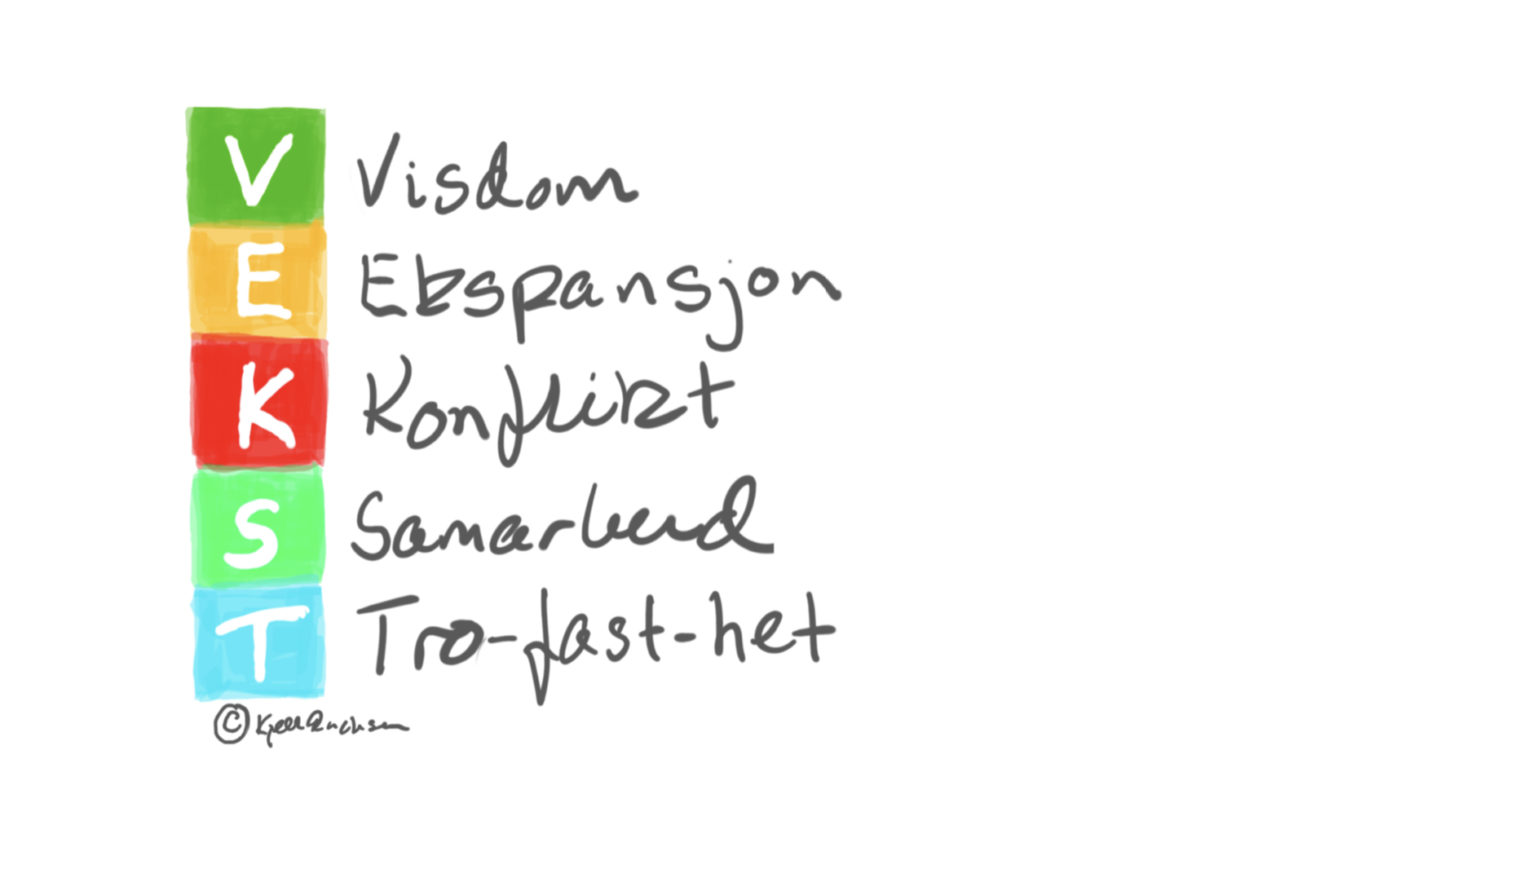 V Visdom
E Ekspansjon
K Konflikt
S Samarbeid
T Tro-fast-het
© Kjell